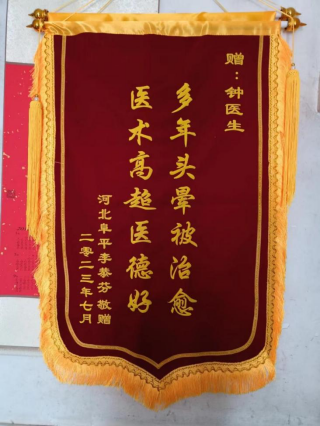 赠：钟医生
多年头晕被治愈
医术高超医德好
河北阜平李黎芬敬赠
二零二三年七月